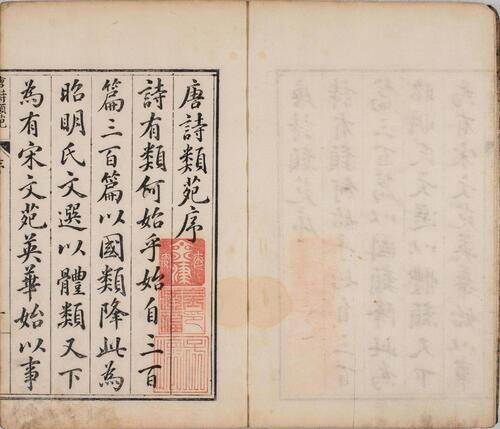 唐詩類苑序
詩有類何始乎始自三百
篇三百篇以國類降此為
昭明氏文選以體類又下
為有宋文苑英華始以事
唐詩類苑